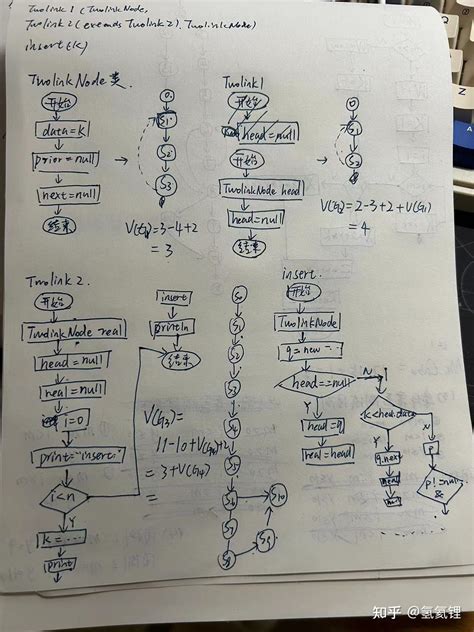 Twolink1 (TwolinkNode,
Twolink2 (extends Twolink2). TwolinkNode)
insert(k)
TwolinkNode类.
开始
data=k
prior=null
next=null
结束
S1
S2
S3
V(G1)=3-4+2
=3
Twolink1
开始
head=null
开始
TwolinkNode head
head=null
结束
S1
S2
V(G2)=2-3+2+V(G1)
=4
Twolink2.
开始
TwolinkNode real
head=null
real=null
i=0
print="insert:"
i<n
Y
k=...
print
insert
println
结束
V(G3)=
11-10+V(G4)+2
=3+V(G4)
=
S0
S1
S2
S3
S4
S5
S6
S10
S7
S8
S9
insert.
开始
TwolinkNode
q=new...
head==null
N
Y
head=q
real=head
k<head.data
Y
N
q.next
P
P!=null
&